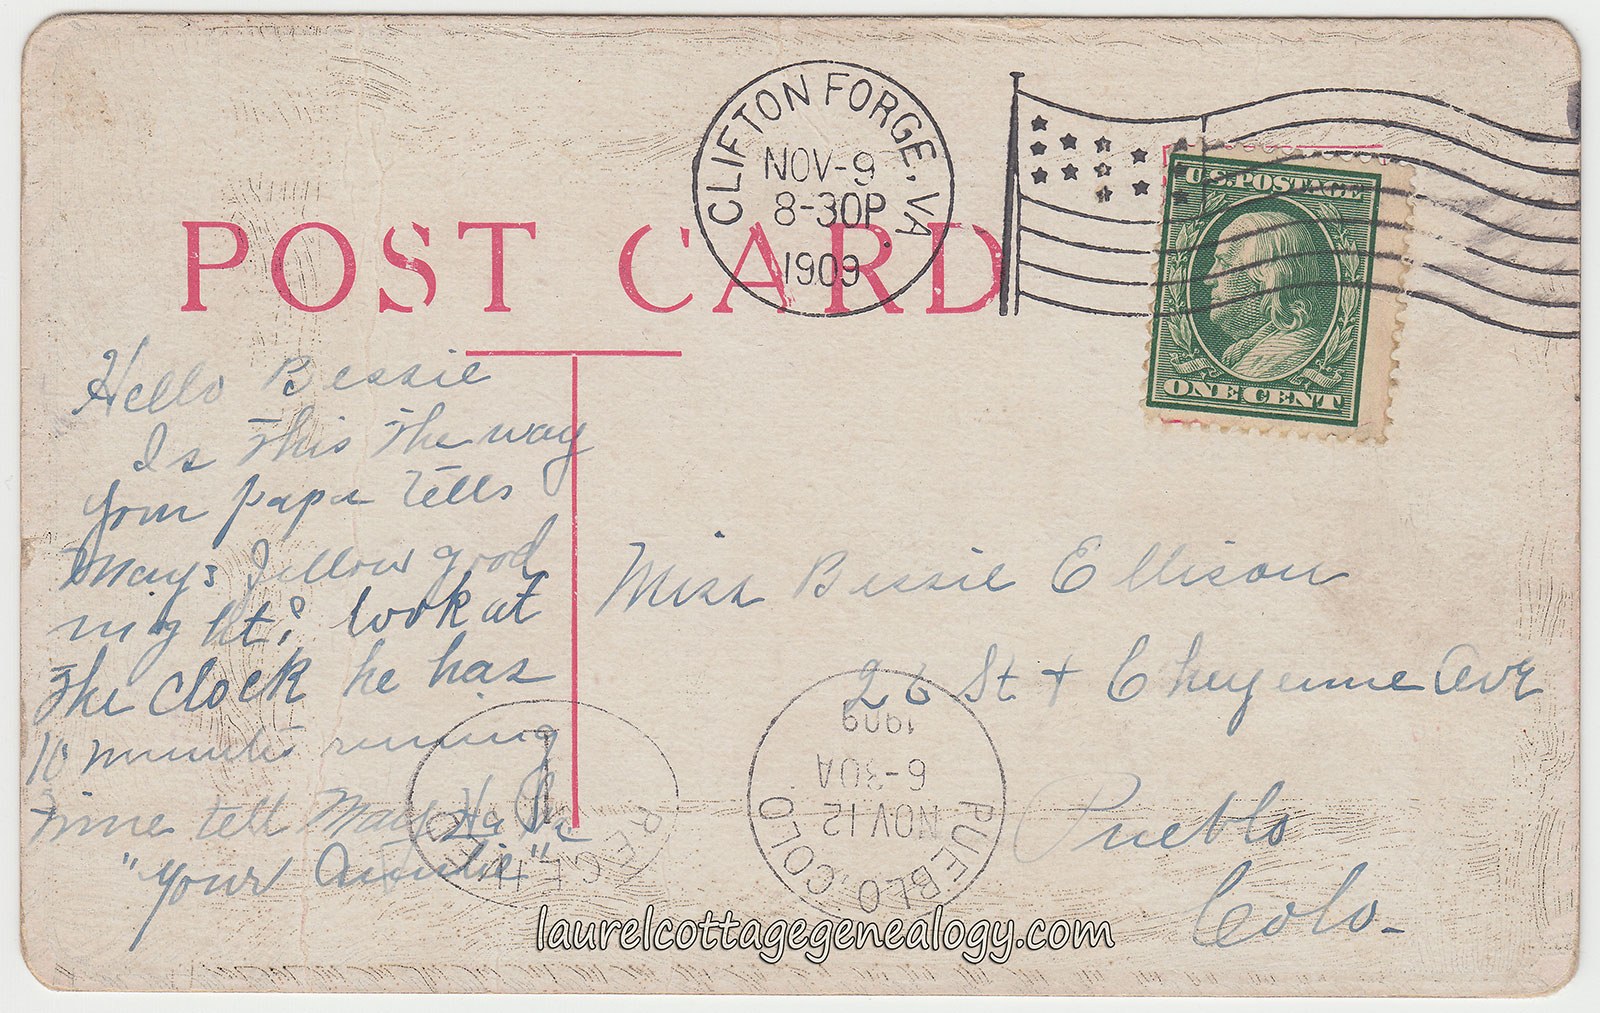 POST CARD
CLIFTON FORGE, VA.
NOV-9
8-30P
1909
U.S. POSTAGE
ONE CENT
Hello Bessie
Is this the way
your papa tells
Mays fellow good
night? look at
the clock he has
10 minutes running
time tell May Ha Ha
"Your Auntie"
Miss Bessie Ellison
26 St + Cheyenne Ave
Pueblo
Colo-
PUEBLO, COLO
NOV 12
6-30A
1909
laurelcottagegenealogy.com